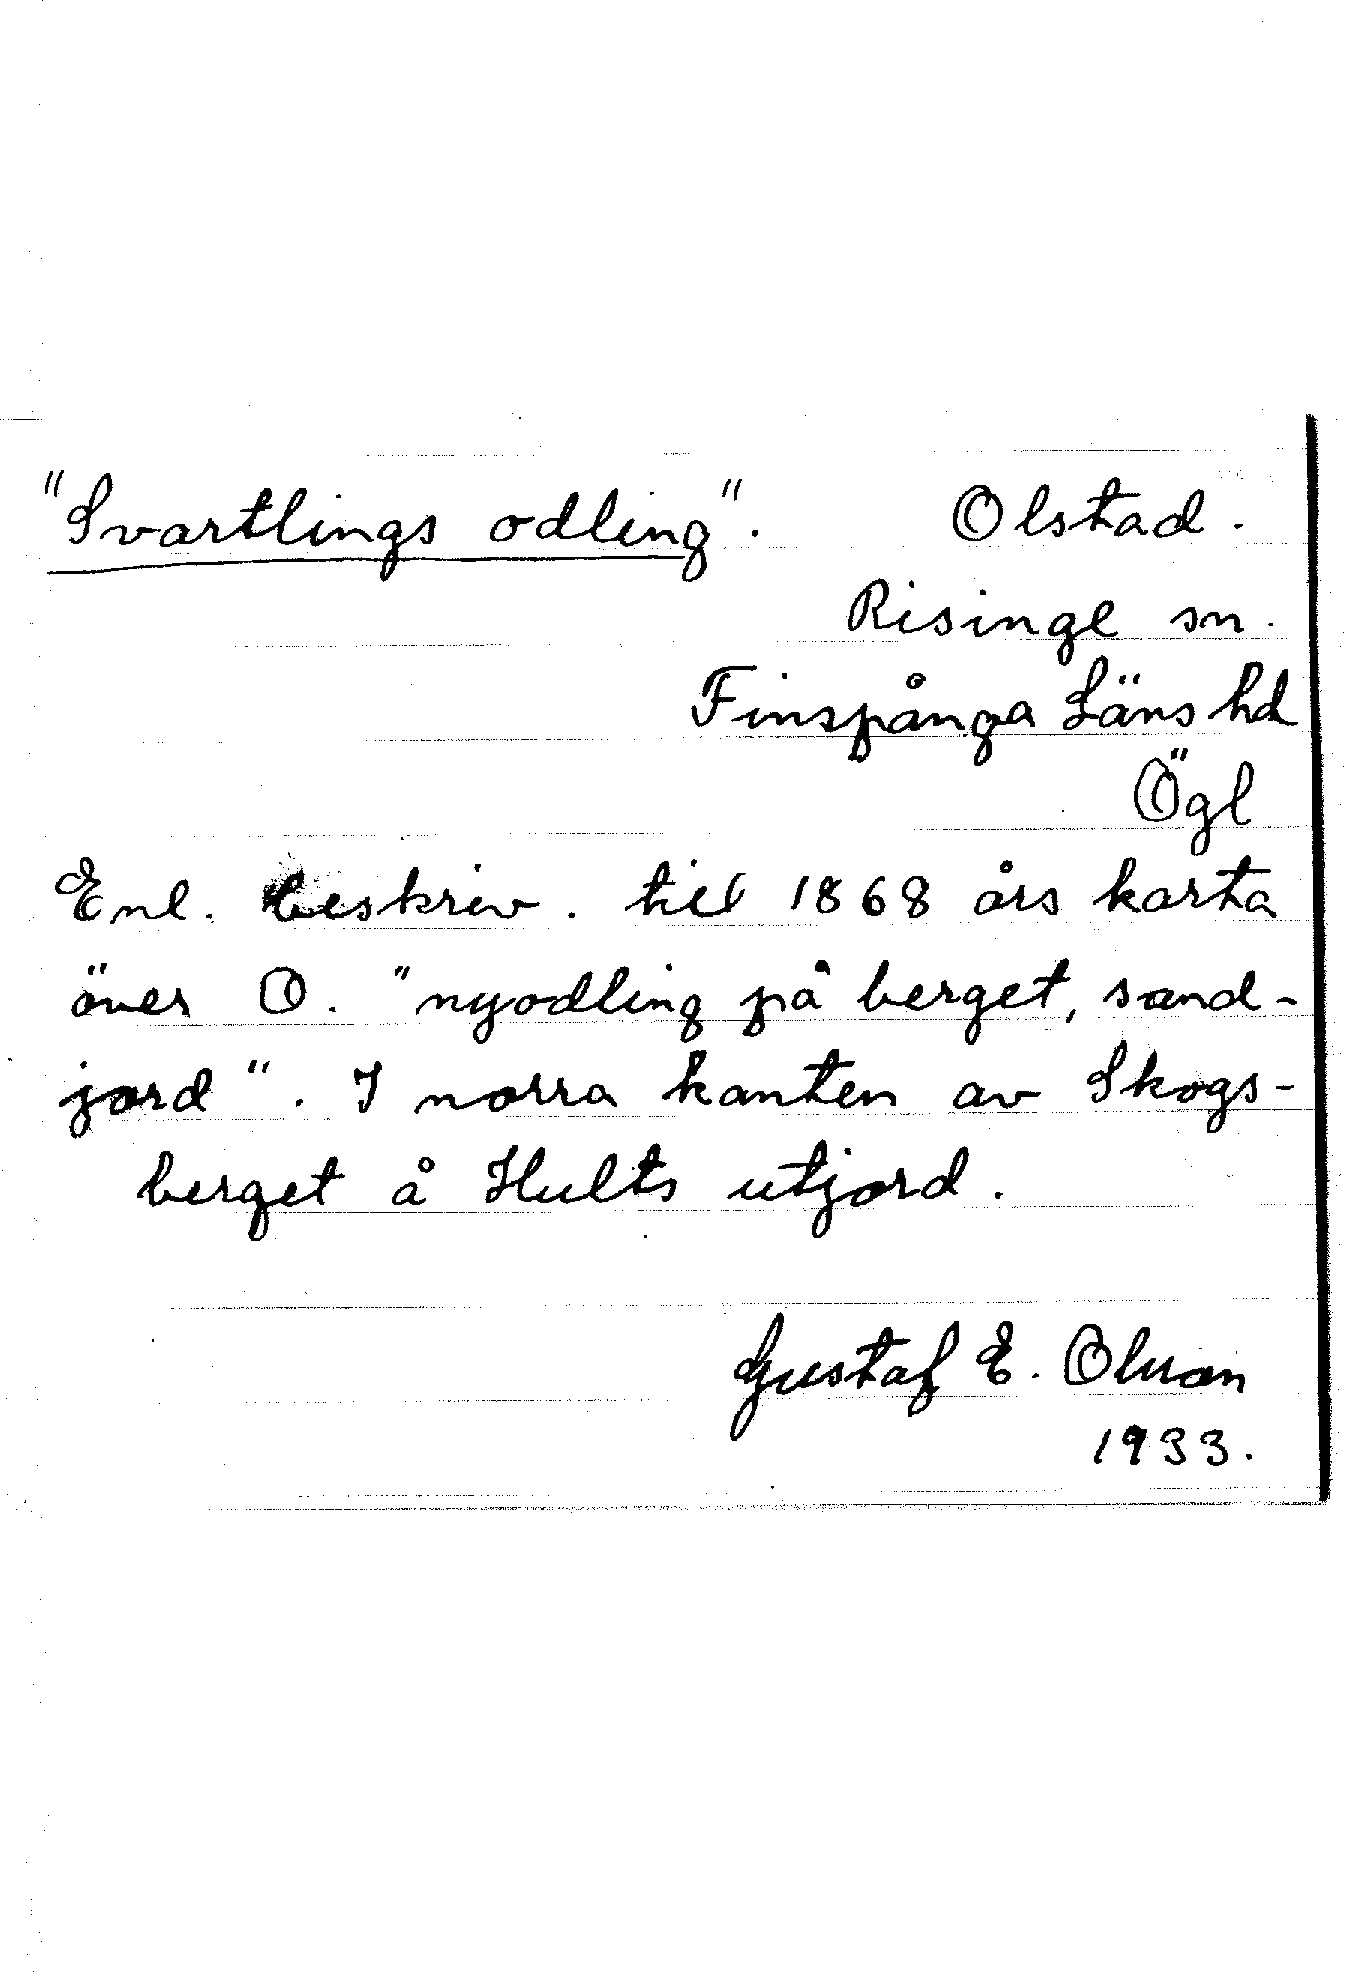 "Svartlings odling". Olstad.
Risinge sn.
Finspånga Läns hd
Ögl
Enl. beskriv. till 1868 års karta
över O. "nyodling på berget, sand-
jord". I norra kanten av Skogs-
berget å Hults utjord.
Gustaf E. Olsson
1933.